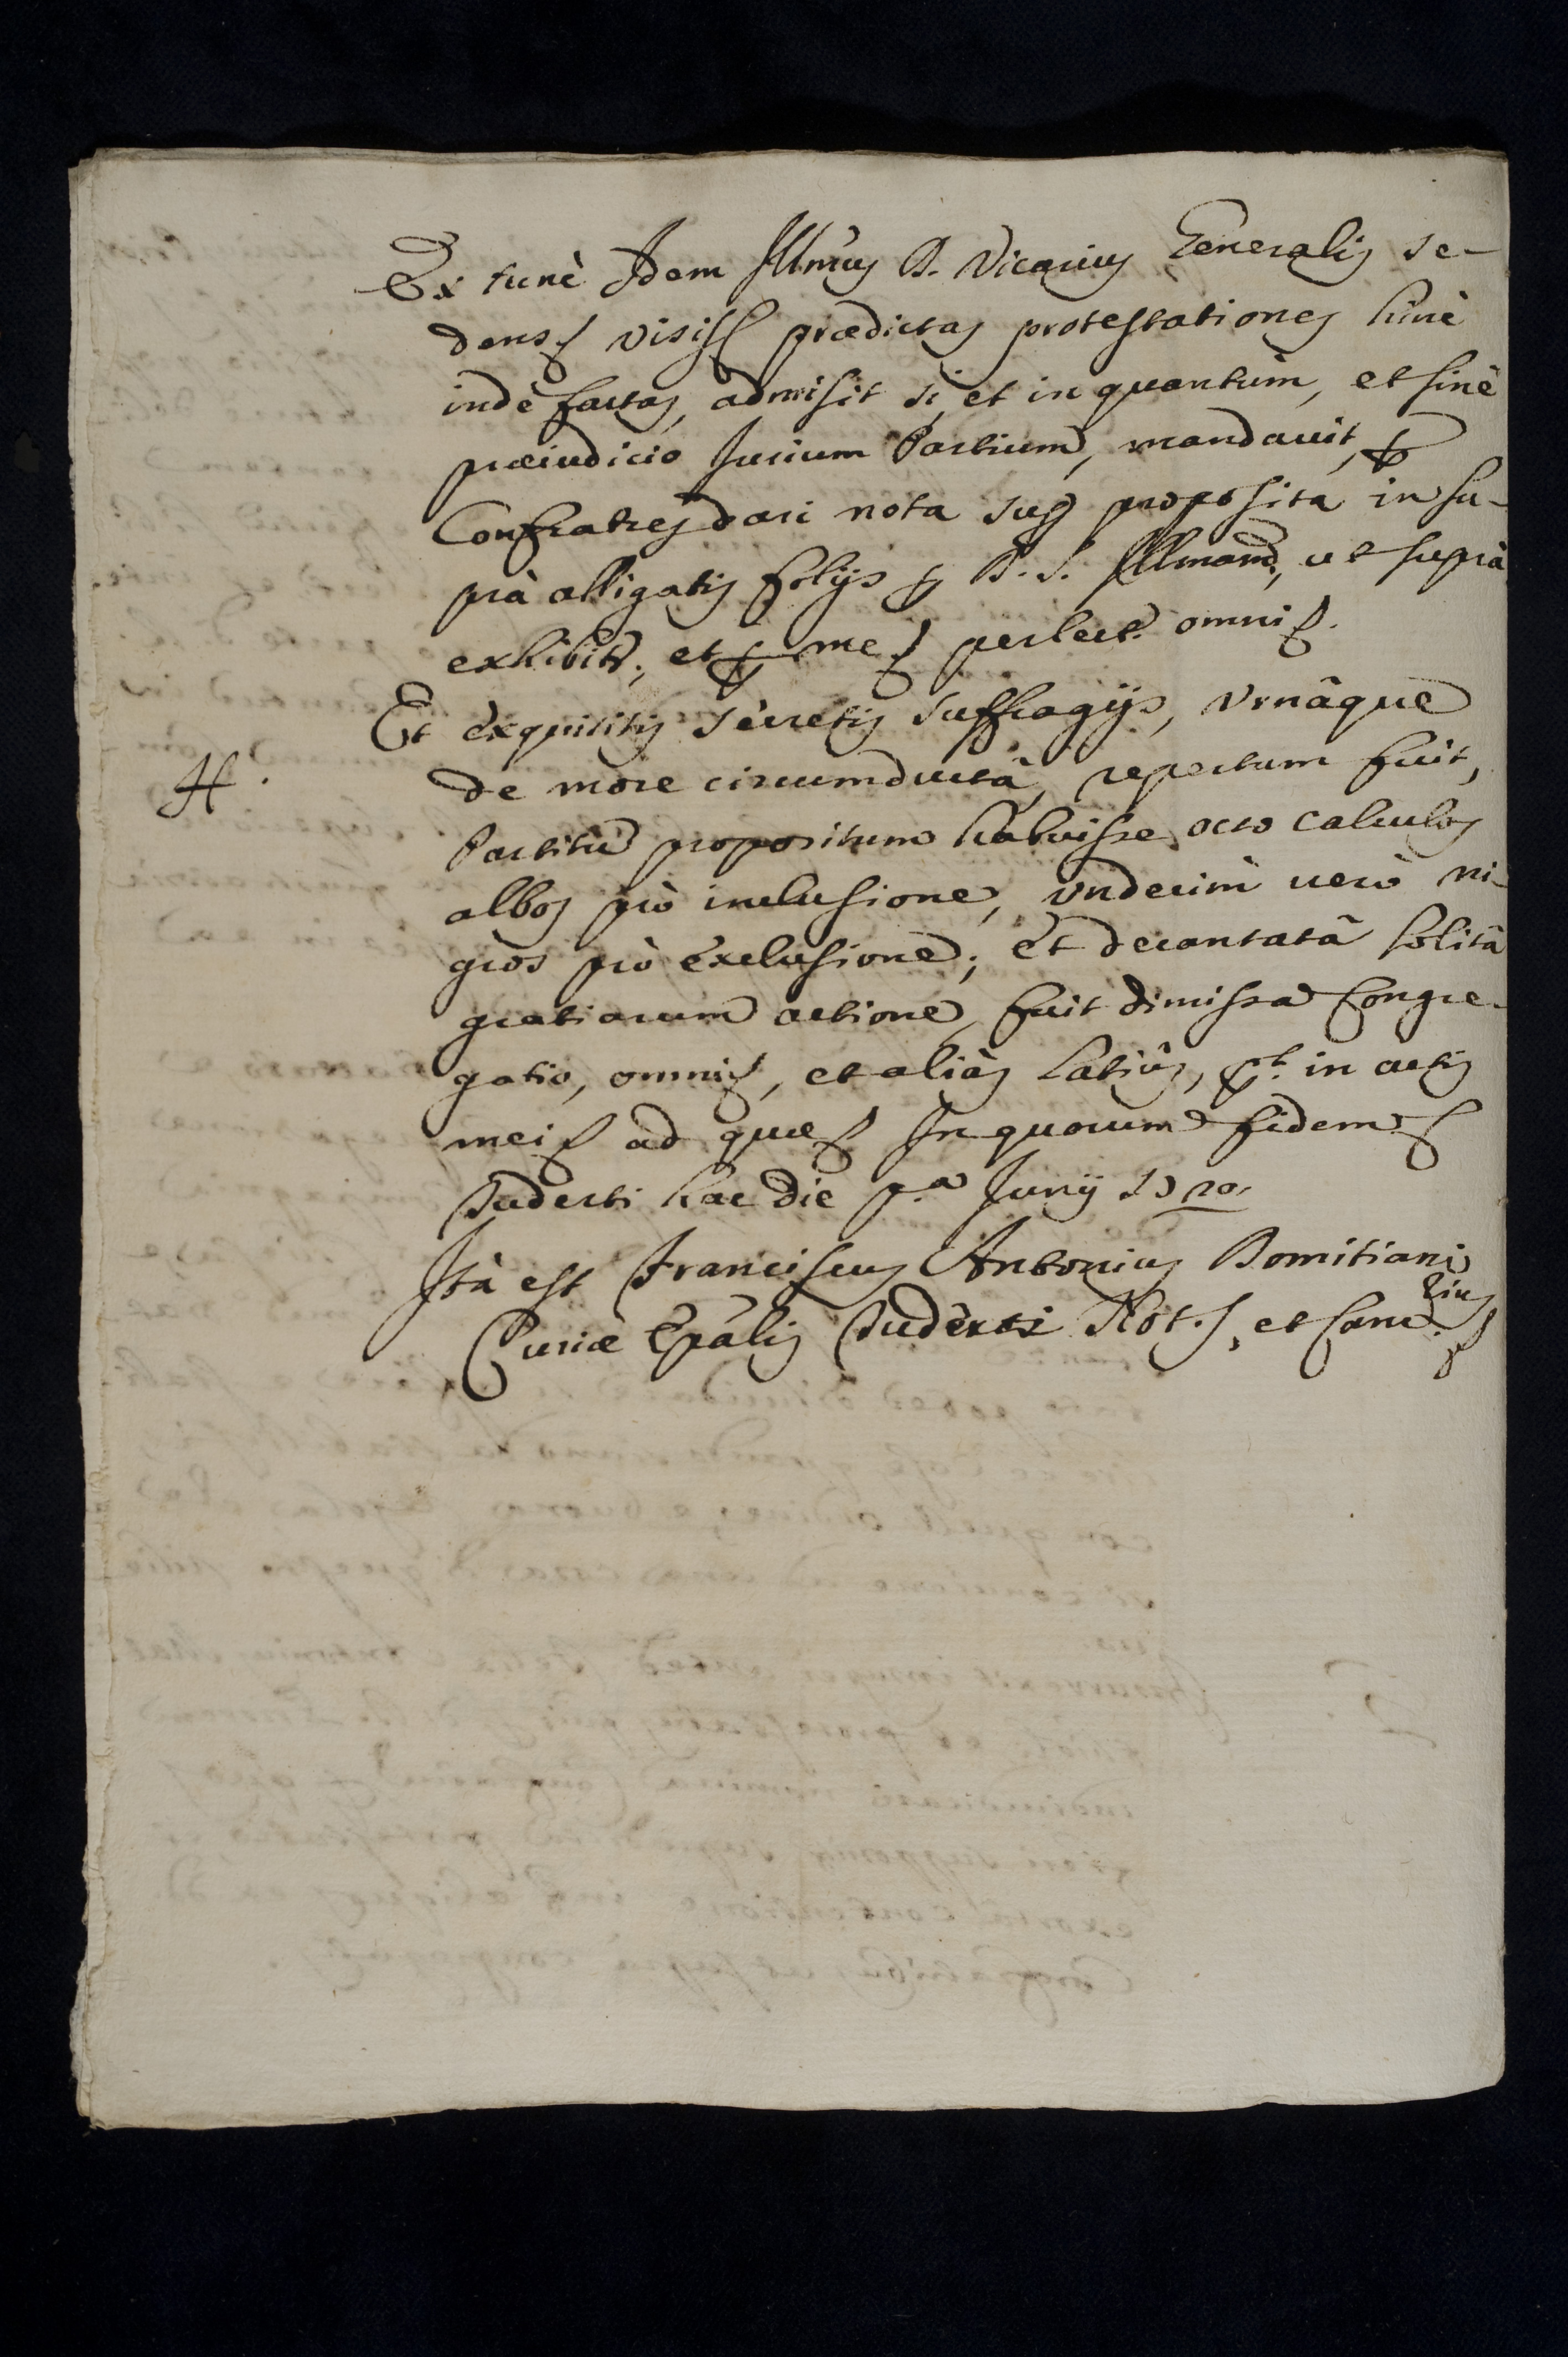 Ex tunc Idem Illmus D. Vicarius Generalis se-
dens visis praedictas protestationes hinc
indè factas, admisit si, et in quantùm, et sinè
praeiudicio Jurium Partium, mandavit, per
Confratres dari nota sup proposita in su-
prà alligatis folijs per D. S. Illmam, ut suprà
exhibit; et per me perlect. omnis.
Et exquisitis sècretis suffragijs, Vrnâque
H. de more circumductâ, repertum fuit,
Partitū propositum habuisse octo calculos
albos prò inclusione, vndecim verò ni-
gros prò exclusione; et decantatâ solitâ
gratiarum actione, fuit dimissa Congre-
gatio, omnis, et aliàs latiùs, pt. in actis
meis ad quae In quorum fidem
Tuderti hac die p.a Junij
Ità est Franciscus Antonius Domitiani
Curiae Epālis Tudèrti Not.s, et Canc.rius